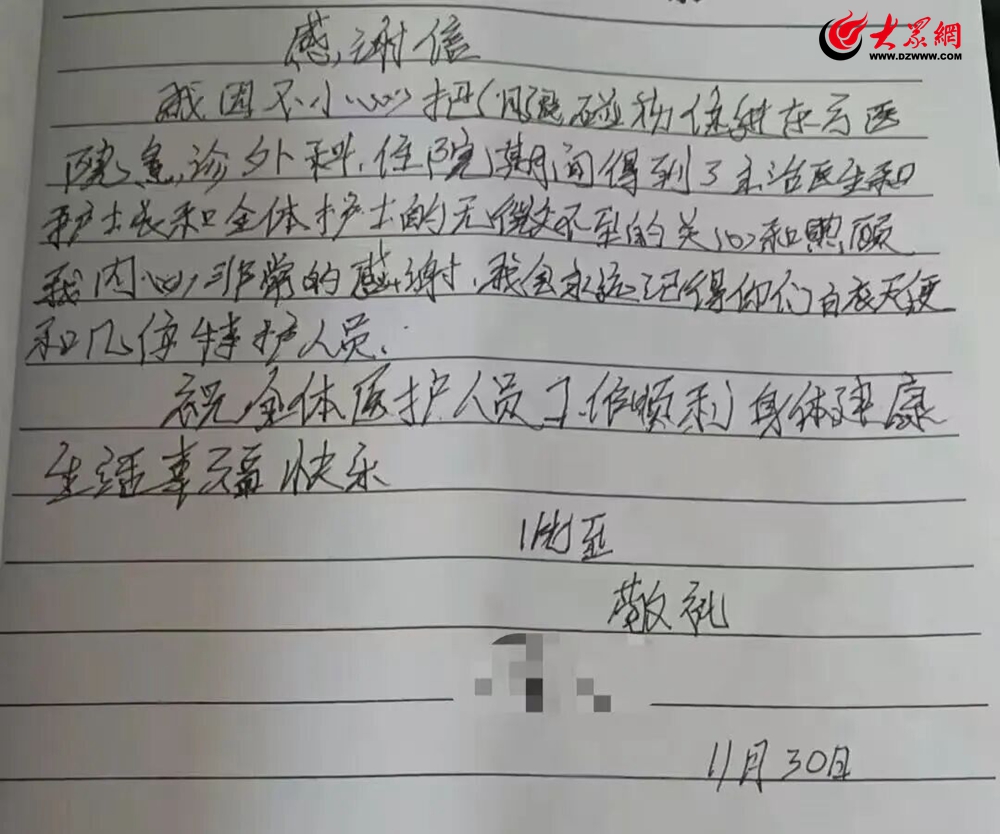 大眾網
WWW.DZWWW.COM
感谢信
我因不小心把腿碰伤住进东方医
院急诊外科,住院期间得到了主治医生和
护士长和全体护士的无微不至的关心和照顾
我内心非常的感谢,我会永远记得你们白衣天使
和几位特护人员.
祝全体医护人员工作顺利身体健康
生活幸福快乐
此至
敬礼
11月30日